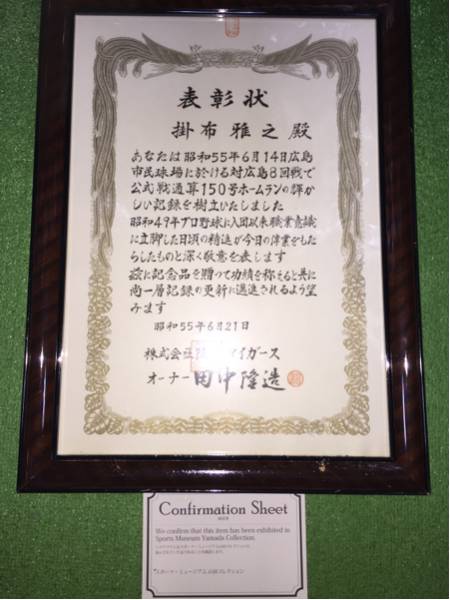 表彰状
掛布雅之殿
あなたは昭和55年6月14日広島
市民球場に於ける対広島8回戦で
公式戦通算150号ホームランの輝か
しい記録を樹立いたしました
昭和49年プロ野球に入団以来職業意識
に立脚した日頃の精進が今日の偉業をもた
らしたものと深く敬意を表します
茲に記念品を贈って功績を称えると共に
尚一層記録の更新に邁進されるよう望
みます
昭和55年6月21日
株式会社 タイガース
オーナー 田中隆造
Confirmation Sheet
We confirm that this item has been exhibited in
Sports Museum Yamada Collection.